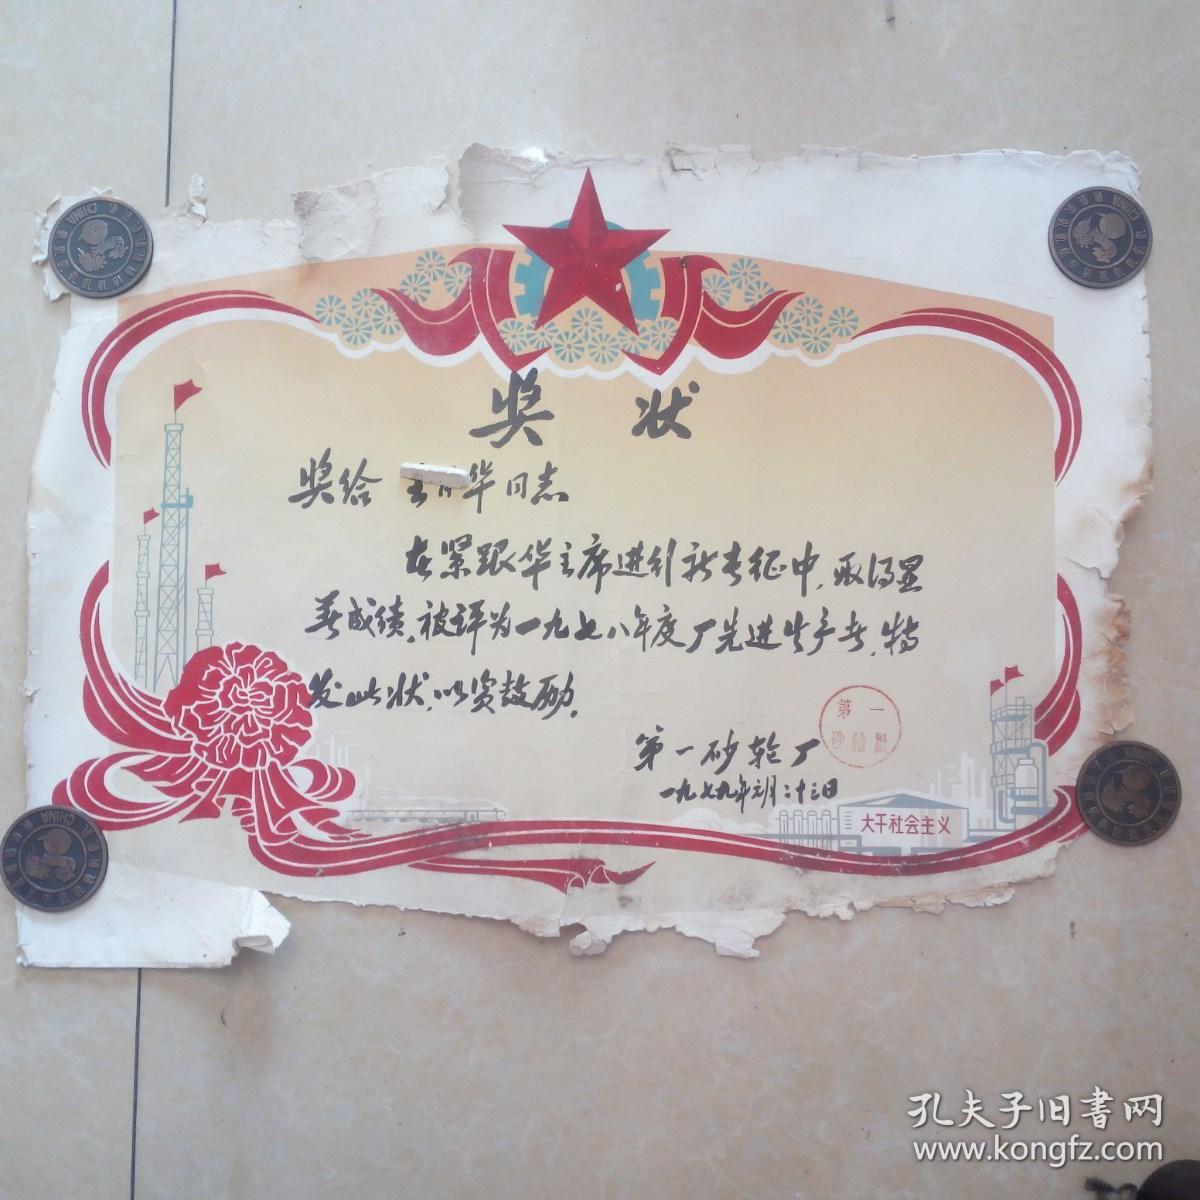 奖状
奖给 华同志
在紧跟华主席进行新长征中，取得显
著成绩，被评为一九七八年度厂先进生产者，特
发此状，以资鼓励。
第一砂轮厂
一九七九年三月二十三日
第一
砂轮厰
大干社会主义
CHINA
CHINA
CHINA
孔夫子旧書网
www.kongfz.com